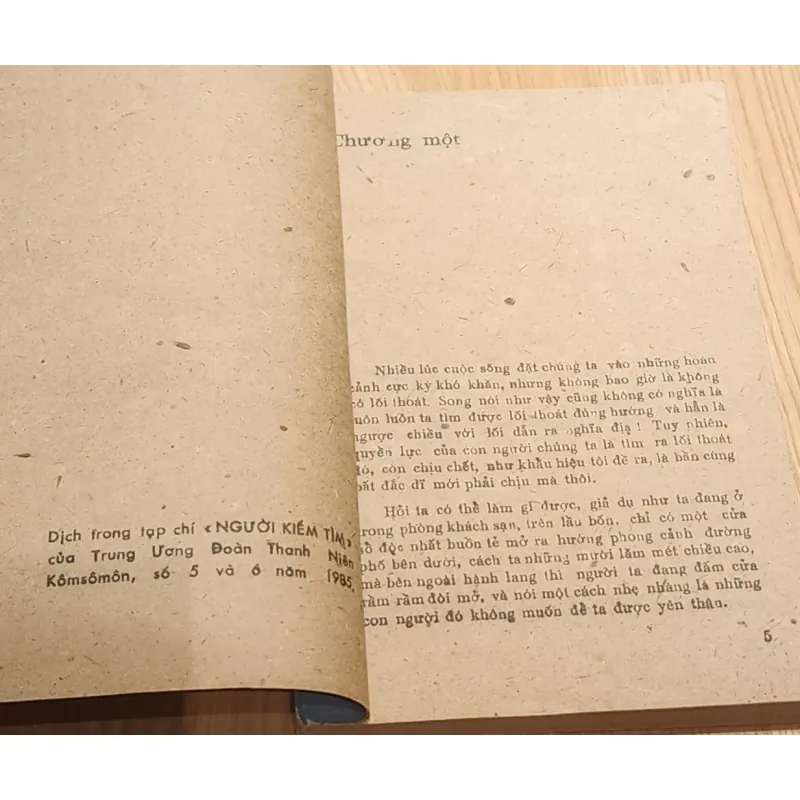 Dịch trong tạp chí «NGƯỜI KIẾM TÌM»
của Trung Ương Đoàn Thanh Niên
Kômsômôn, số 5 và 6 năm 1985.
Chương một
Nhiều lúc cuộc sống đặt chúng ta vào những hoàn
cảnh cực kỳ khó khăn, nhưng không bao giờ là không
có lối thoát. Song nói như vậy cũng không có nghĩa là
luôn luôn ta tìm được lối thoát đúng hướng và hẳn là
ngược chiều với lối dẫn ra nghĩa địa! Tuy nhiên,
quyền lực của con người chúng ta là tìm ra lối thoát
đó, còn chịu chết, như khẩu hiệu tôi đề ra, là bần cùng
bất đắc dĩ mới phải chịu mà thôi.
Hỏi ta có thể làm gì được, giả dụ như ta đang ở
trong phòng khách sạn, trên lầu bốn, chỉ có một cửa
sổ độc nhất buồn tẻ mở ra hướng phong cảnh đường
phố bên dưới, cách ta những mười lăm mét chiều cao,
mà bên ngoài hành lang thì người ta đang đấm cửa
rầm rầm đòi mở, và nói một cách nhẹ nhàng là những
con người đó không muốn để ta được yên thân.
5